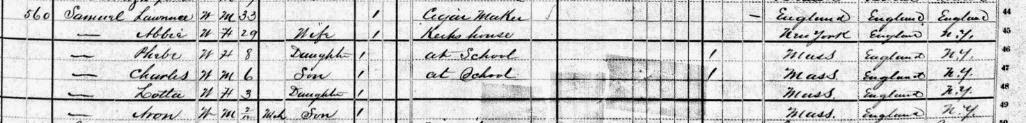 560 Samuel Lawrence W M 33 1 Cigar Maker — England England England 44
— Abbie W F 29 Wife 1 Keeks house New York England N.Y. 45
— Phebe W F 8 Daughter 1 at School 1 Mass England N.Y. 46
— Charles W M 6 Son 1 at School 1 Mass England N.Y. 47
— Lotta W F 3 Daughter 1 Mass England N.Y. 48
— Aron W M Son 1 Mass. England N.Y. 49